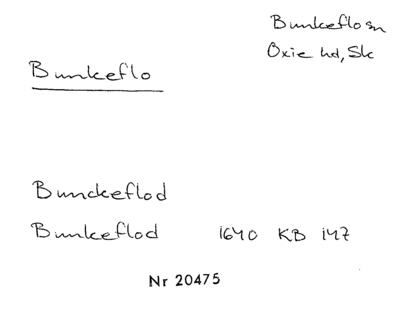 Bunkeflo sn
Oxie hd, Sk
Bunkeflo
Bunckeflod
Bunkeflod 1640 KB 147
Nr 20475